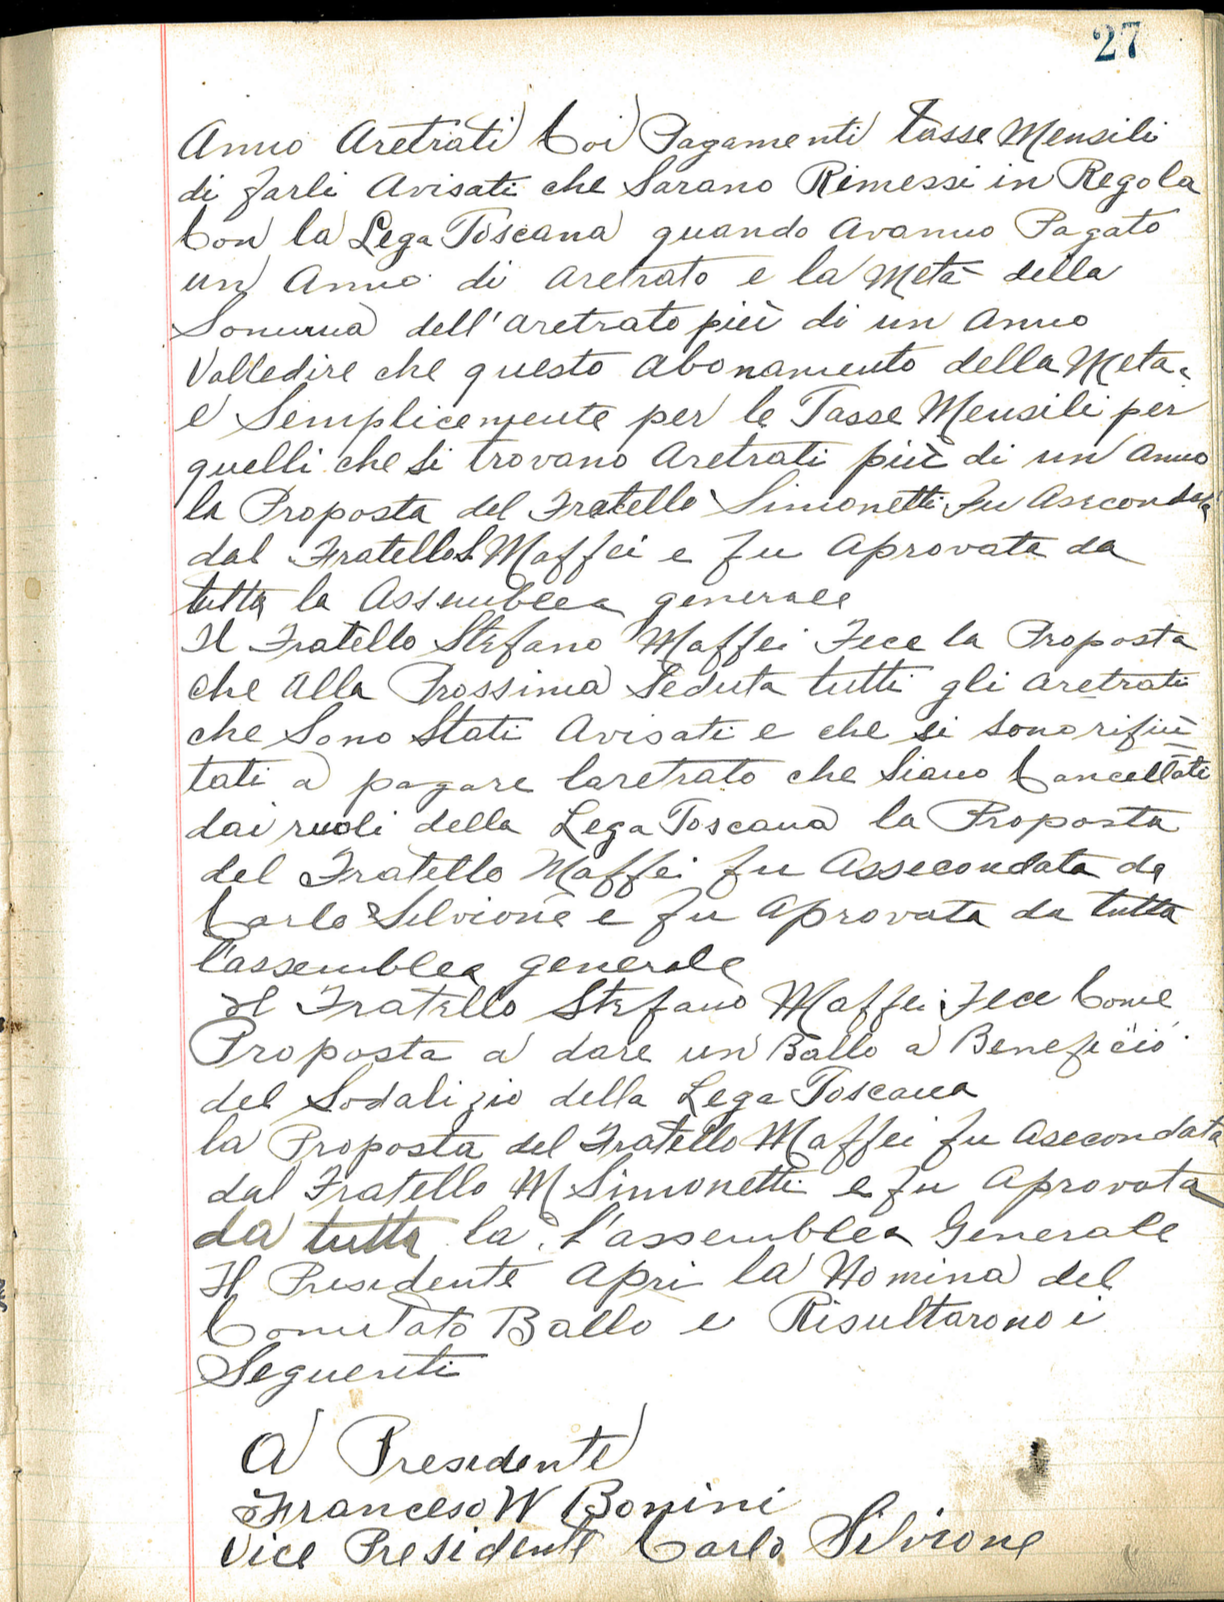 27
Anno Aretrati Coi Pagamenti Tasse Mensili
di farli Avisati che Sarano Rimessi in Regola
Con la Lega Toscana quando Avanno Pagato
un Anno di Aretrato e la Metà della
Somma dell'aretrato più di un Anno
Valledire che questo Abonamento della Meta
e Semplicemente per le Tasse Mensili per
quelli che Si trovano Aretrati più di un Anno
la Proposta del Fratello Simonetti Fu Asecondata
dal Fratello S Maffei e fu Aprovata da
tutta la Assemblea generale
Il Fratello Stefano Maffei Fece la Proposta
che Alla Prossima Seduta tutti gli aretrati
che Sono Stati Avisati e che si sono rifiu
tati a pagare laretrato che Siano Cancellati
dai ruoli della Lega Toscana la Proposta
del Fratello Maffei fu Assecondata da
Carlo Silvione e fu Aprovata da tutta
l'assemblea generale
Il Fratello Stefano Maffei Fece Come
Proposta a dare un Ballo a Beneficio
del Sodalizio della Lega Toscana
la Proposta del Fratello Maffei fu Asecondata
dal Fratello M Simonetti e fu Aprovata
da tutta la l'assemblea Generale
Il Presidente Apri la Nomina del
Comitato Ballo e Risultarono i
Seguenti
A Presidente
Franceso W Bonini
Vice Presidente Carlo Silvione